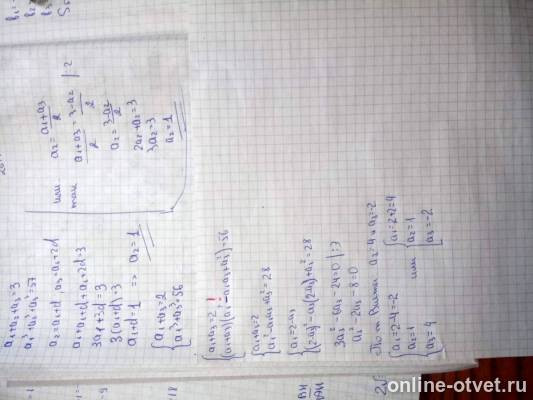 a₁+a₂+a₃=3
a₁³+a₂³+a₃³=57
a₂=a₁+d, a₃=a₁+2d
a₁+a₁+d+a₁+2d=3
3a₁+3d=3
3(a₁+d)=3
a₁+d=1 => a₂=1
{a₁+a₃=2
{a₁³+a₃³=56
или
так
a₂=(a₁+a₃)/2
(a₁+a₃)/2=(3-a₂)/2 |:2
a₂=(3-a₂)/2
2a₂+a₂=3
3a₂=3
a₂=1
{a₁+a₃=2
{(a₁+a₃)(a₁²-a₁a₃+a₃²)=56
{a₁+a₃=2
{a₁²-a₁a₃+a₃²=28
{a₁=2-a₃
{(2-a₃)²-a₃(2-a₃)+a₃²=28
3a₃²-6a₃-24=0 |:3
a₃²-2a₃-8=0
По т. Виета a₃=4 и a₃=-2
{a₁=2-4=-2
{a₂=1
{a₃=4
или
{a₁=2+2=4
{a₂=1
{a₃=-2
online-otvet.ru